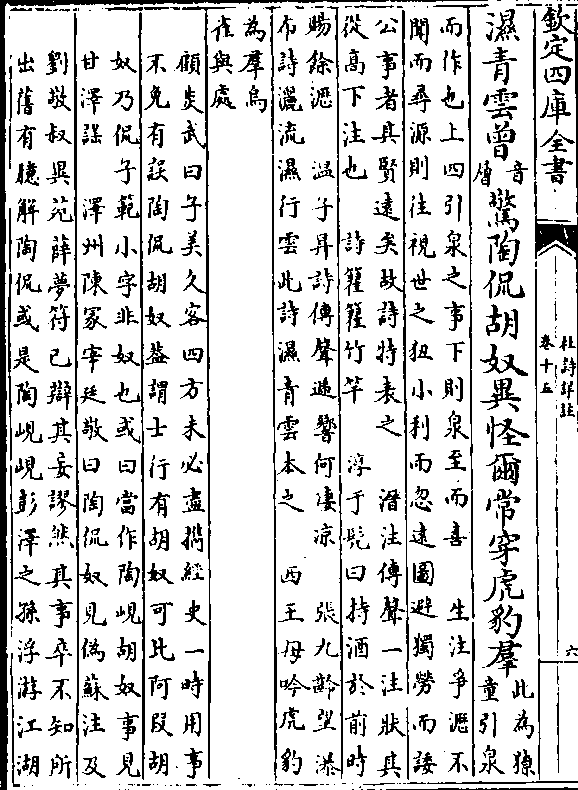 欽定四庫全書
杜詩詳註
卷十五
六
濕青雲曾音層驚陶侃胡奴異怪爾常穿虎豹羣此為獠童引泉
而作也上四引泉之事下則泉至而喜　生注爭瀝不
聞而尋源則往視世之狃小利而忽遠圖避獨勞而諉
公事者其賢遠矣故詩特表之　潛注傳聲一注狀其
從高下注也　詩籊籊竹竿　淳于髠曰持酒於前時
賜餘瀝　温子昇詩傳聲遞響何凄凉　張九齡望瀑
布詩灑流濕行雲此詩濕青雲本之　西王母吟虎豹
為羣烏
雀與處
顧炎武曰子美久客四方未必盡攜經史一時用事
不免有誤陶侃胡奴葢謂士行有胡奴可比阿段胡
奴乃侃子範小字非奴也或曰當作陶峴胡奴事見
甘澤謡　澤州陳冡宰廷敬曰陶侃奴見偽蘇注及
劉敬叔異苑薛夢符已辯其妄謬然其事卒不知所
出舊有臆解陶侃或是陶峴峴彭澤之孫浮游江湖